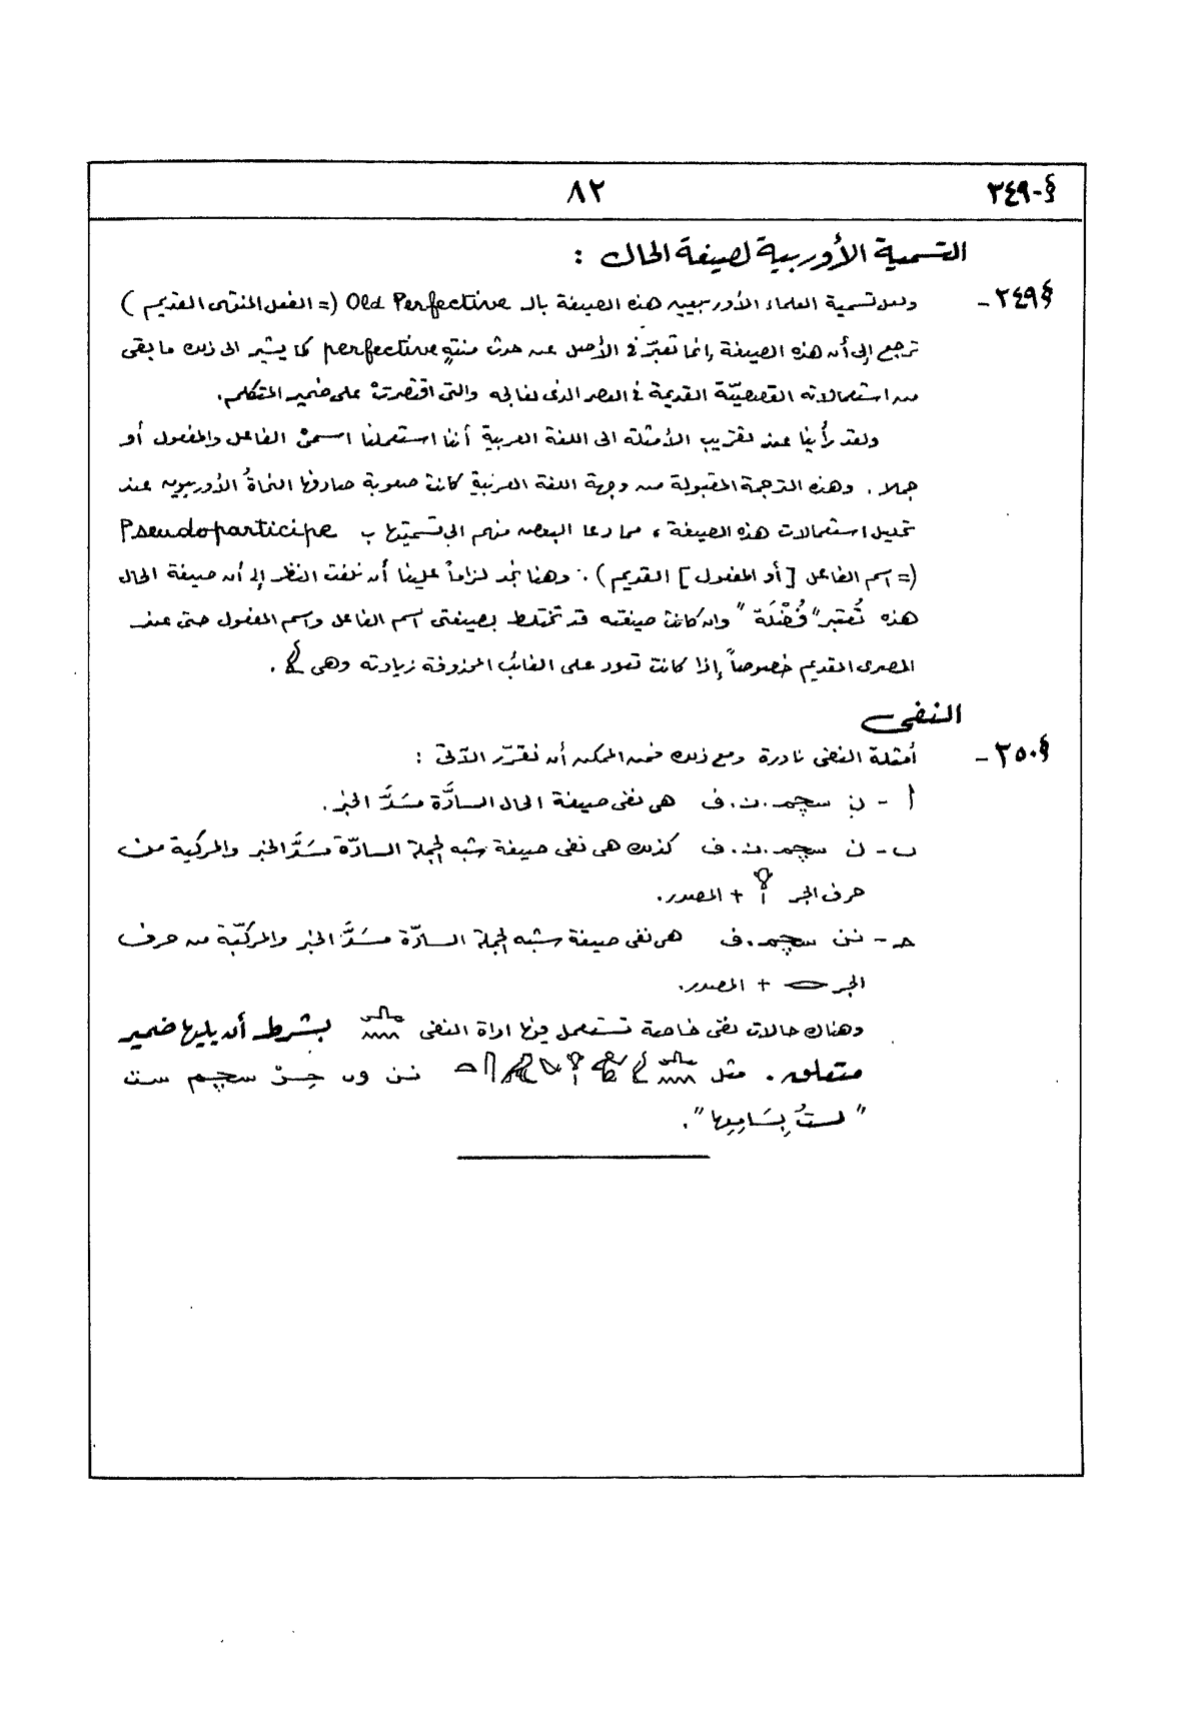 §-٣٤٩
٨٢
التسمية الأوربية لصيغة الحال :
§٣٤٩- ولعل تسمية العلماء الأوربيين هذه الصيغة بالـ Old Perfective (= الفعل المنتهى القديم )
ترجع إلى أن هذه الصيغة إنما تعبّر فى الأصل عن حدث منتهٍ perfective كما يشير الى ذلك ما بقى
من استعمالاته القصصيّة القديمة فى العصر الذى نعالجه والتى اقتصرتْ على ضمير المتكلم.
ولقد رأينا عند تقريب الأمثلة الى اللغة العربية أننا استعملنا اسمىْ الفاعل والمفعول أو
جملا . وهذه الترجمة المقبولة من وجهة اللغة العربية كانت صعوبة صادفها النحاةُ الأوربيون عند
تحليل استعمالات هذه الصيغة ، مما دعا البعض منهم الى تسميتها ب Pseudoparticipe
(= اسم الفاعل [أو المفعول] القديم ) . وهنا نجد لزاماً علينا أن نلفت النظر إلى أن صيغة الحال
هذه تُعتبر "فُضْلَة" وان كانت صيغته قد تختلط بصيغتى اسم الفاعل واسم المفعول حتى عند
المصرى القديم خصوصاً إذا كانت تعود على الغائب المحذوفة زيادته وهى .
النفى
§٣٥٠- أمثلة النفى نادرة ومع ذلك فمن الممكن أن نقرّر الآتى :
أ - ن سچم.ن.ف هى نفى صيغة الحال السادَّة مَسَدَّ الخبر .
ب - ن سچم.ن.ف كذلك هى نفى صيغة شبه الجملة السادّة مَسَدَّ الخبر والمركبة من
حرف الجر + المصدر.
حـ - نن سچم.ف هى نفى صيغة شبه الجملة السادّة مَسَدَّ الخبر والمركّبة من حرف
الجر + المصدر.
وهناك حالات نفى خاصة تستعمل فيها اداة النفى بشرط أن يليها ضمير
متعلق . مثل نن وى حِـرْ سچم ست
"لستُ بِسَامِعِها" .